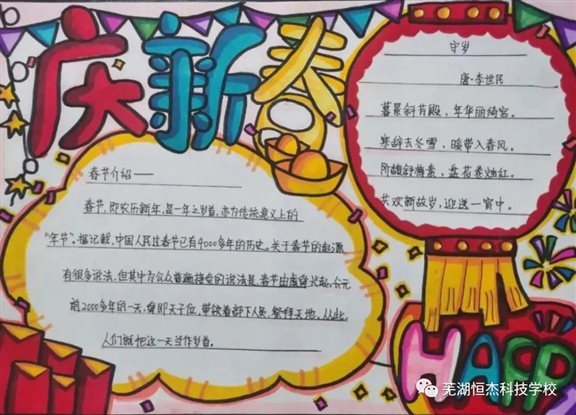 庆新春
春节介绍——
春节,即农历新年,是一年之岁首,亦为传统意义上的
"年节"。据记载,中国人民过春节已有4000多年的历史。关于春节的起源
有很多说法,但其中为公众普遍接受的说法是,春节由虞舜兴起。公元
前2000多年的一天,舜即天子位,带领着部下人员,祭拜天地。从此,
人们就把这一天当作岁首。
守岁
唐·李世民
暮景斜芳殿,年华丽绮宫。
寒辞去冬雪,暖带入春风。
阶馥舒梅素,盘花卷烛红。
共欢新故岁,迎送一宵中。
HAPP
芜湖恒杰科技学校